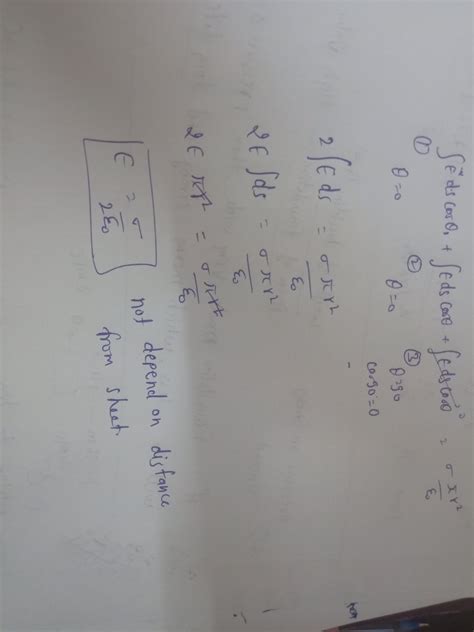 ∫E⃗ ds cosθ₁ + ∫E ds cosθ + ∫E ds cosθ = σπr²/ε₀
① ② ③
θ=0 θ=0 θ=90
cos90=0
2∫E ds = σπr²/ε₀
2E∫ds = σπr²/ε₀
2E πr² = σπr²/ε₀
E = σ/2ε₀
not depend on distance
from sheet.